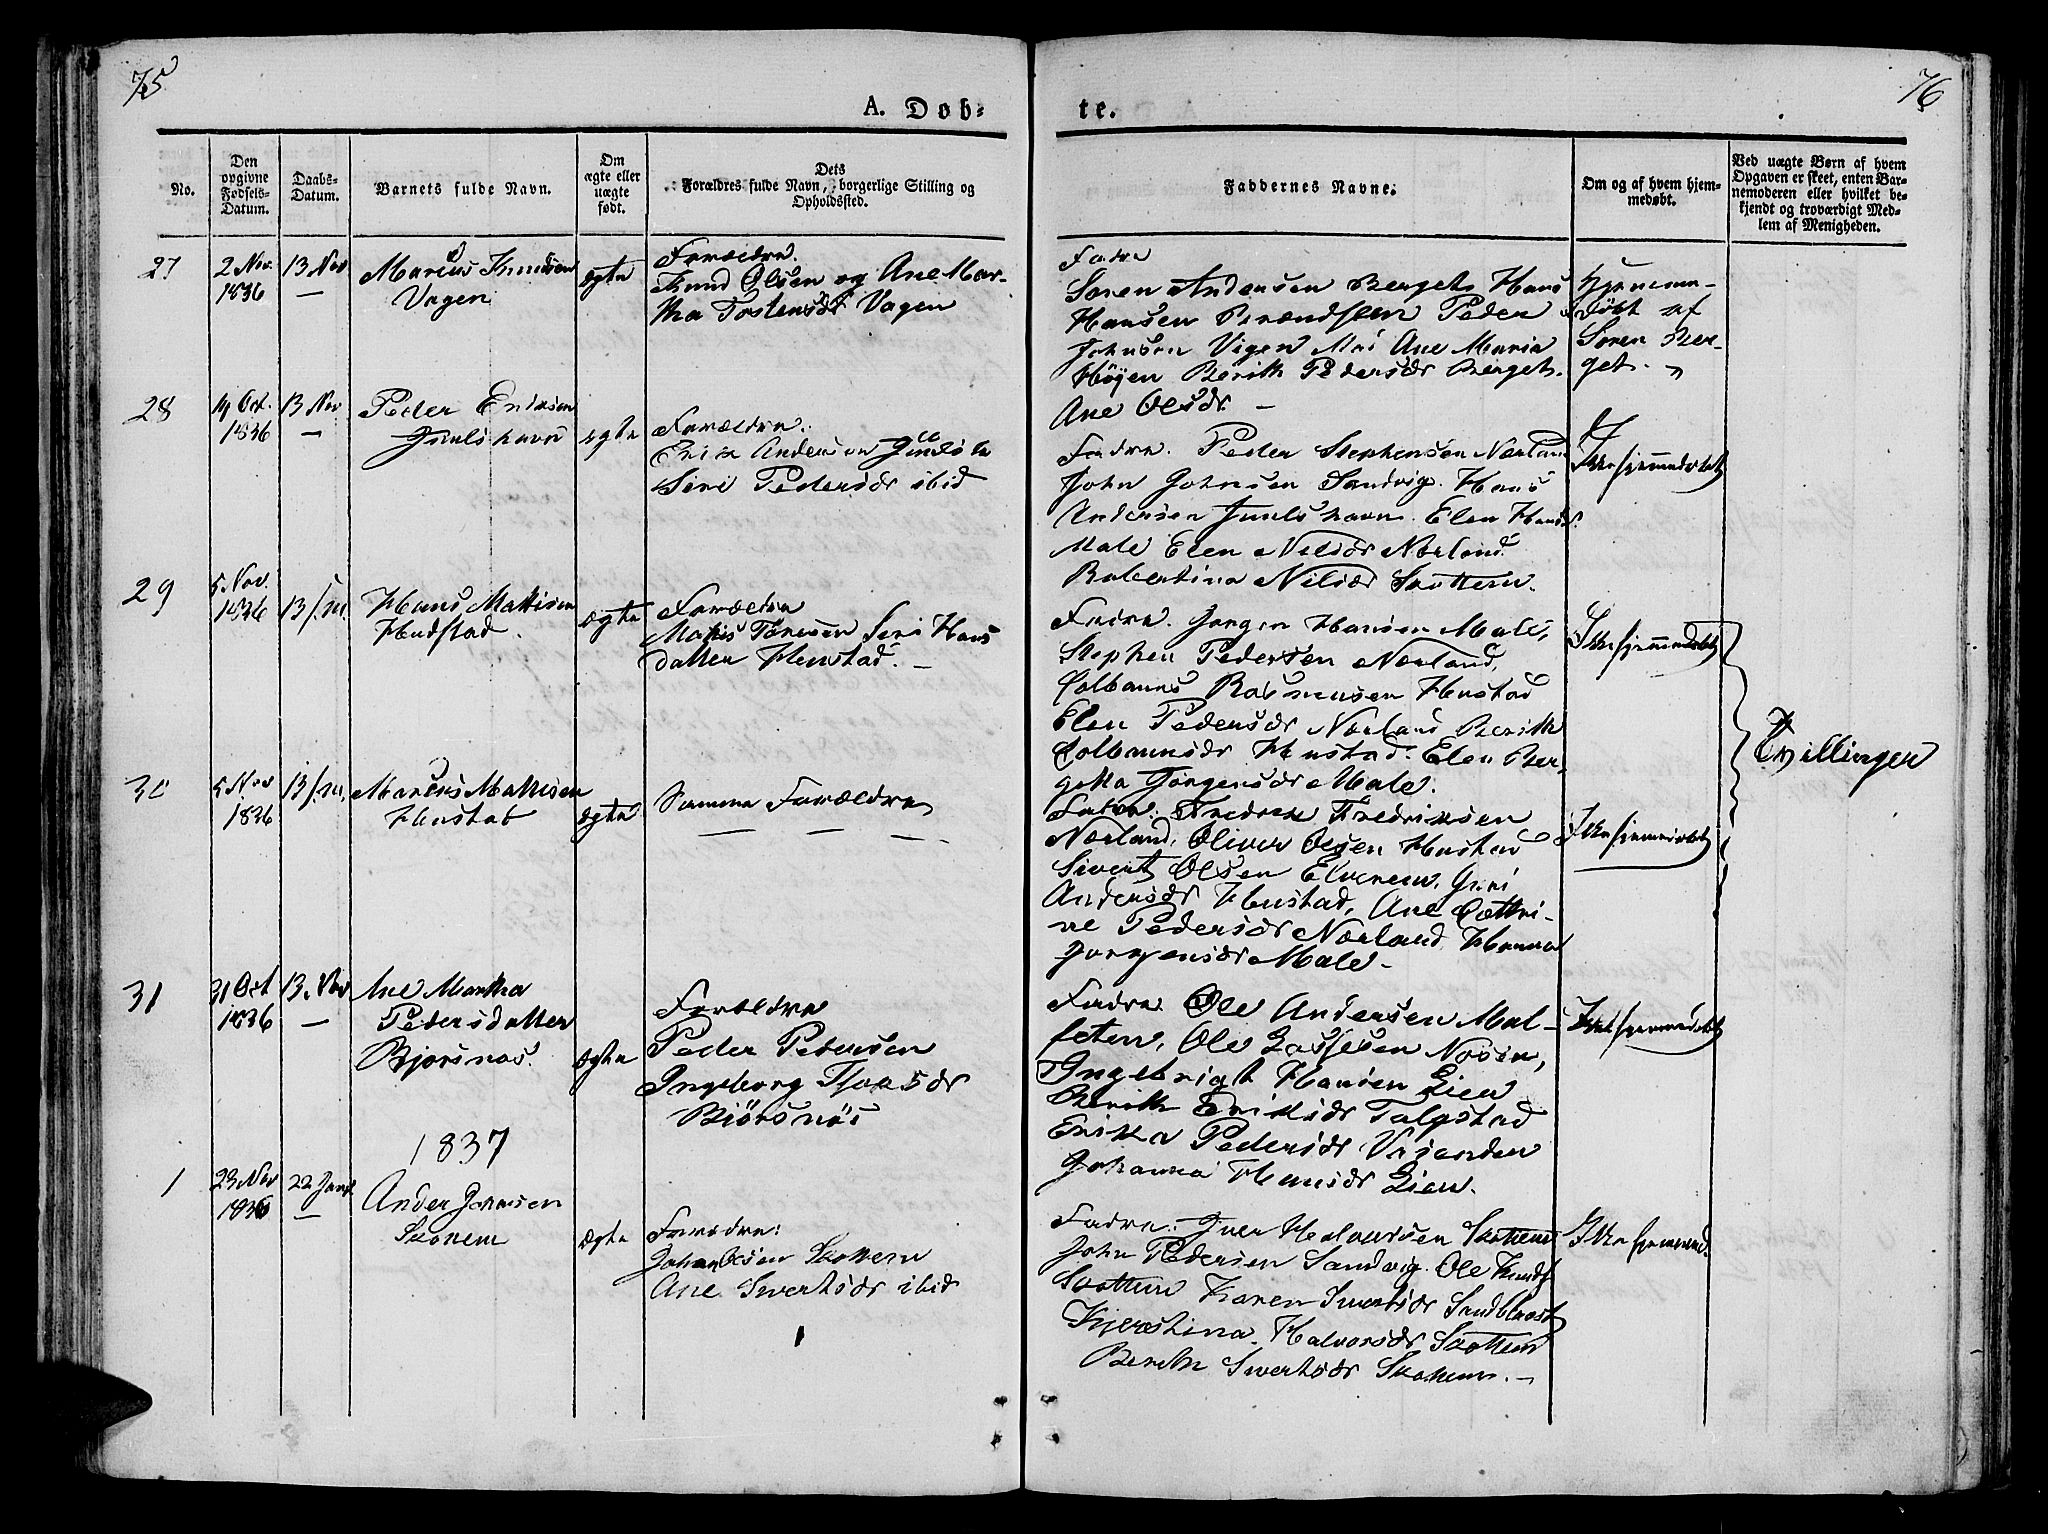 75
76
A. Døb-
te.
No.
Den
opgivne
Fødsels-
Datum.
Daabs-
Datum.
Barnets fulde Navn.
Om
ægte eller
uægte
født.
Dets
Forældres fulde Navn, borgerlige Stilling og
Opholdssted.
Faddernes Navne.
Om og af hvem hjem-
medøbt.
Ved uægte Børn af hvem
Opgaven er skeet, enten Bar-
nemoderen eller hvilket be-
kjendt og troværdigt Med-
lem af Menigheden.
27
2 Nov.
1836
13 Nov
—
Marius Knudsen
Vagen
ægte
Forældre.
Knud Olsen og Ane Mar-
tha Tostensdr Vagen
Fadre
Soren Andersen Berget Hans
Hansen Peder
Johnsen Vigen Ane Maria
Høyen Berith Pedersdr Berget.
Ane Olsdr. —
Hjemme-
døbt af
Soren Ber-
get.
28
14 Oct.
1836
13 Nov
—
Peder Eriksen
Juulshavn
ægte
Forældre.
Erik Andersen
Siri Pedersdr ibid
Fadre. Peder Stephensen Nærland
John Johnsen Sandvig. Hans
Andersen Juulshavn. Elen Hansdr
Male Elen Nilsdr Nærland
Robertina Nilsdr Skottem.
Ikke hjemmedøbt
29
5 Nov.
1836
13/11.
Hans Mathisen
Hudstad.
ægte
Forældre
Mathis Toresen Siri Hans
datter Hustad. —
Fadre. Jorgen Hansen Male,
Stephen Pedersen Nærland,
Colbanns Rasmusen Hustad
Elen Pedersdr Nærland Berith
Colbannsdr Hustad. Elen Ber-
getta Jørgensdr Male.
Ikke hjemmedøbt
Tvillinger
30
5 Nov
1836
13/11.
Mathisen
Hustad
ægte
Samme Forældre
— — —
Fadre. Fredrik Fredriksen
Nærland, Oliver Olsen Hustad
Sivert Olsen Elvenem, Guri
Andersdr Hustad, Ane Cathri-
ne Pedersdr Nærland, Hanna
Jorgensdr Male. —
Ikke hjemmedøbt
31
31 Oct
1836
13. Nov
—
Ane Martha
Pedersdatter
Bjorsnos.
ægte
Forældre
Peder Pedersen
Ingeborg
Biörsnös
Fadre. Ole Andersen Mal-
feten, Ole Nosen,
Ingebrigt Hansen Lien
Berith Eriksdr Talgstad
Erika Pedersdr
Johanna Hansdr Lien.
Ikke hjemmedøbt
1837
1
23 Nov
1836
22 Janr
—
Ander Johnsen
Skotem
ægte
Forældre:
John Olsen Skottem
Ane Sivertsdr ibid
Fadre: Iver Halvorsen Skottem
John Pedersen Sandvig. Ole Knuds
Skottem Karen Sivertsdr Sandblaast
Kjerstina Halvorsdr Skottem
Berith Sivertsdr Skottem. —
Ikke hjemmed.